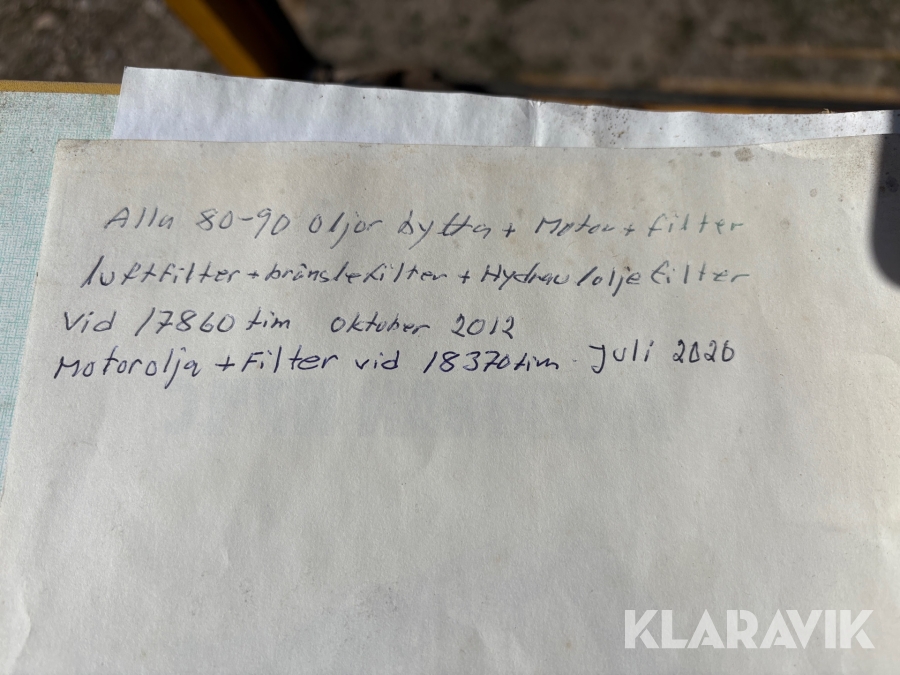 Alla 80-90 oljor bytta + Motor + filter
luftfilter + bränslefilter + Hydrauloljefilter
Vid 17860 tim oktober 2012
Motorolja + Filter vid 18370 tim. Juli 2020
KLARAVIK